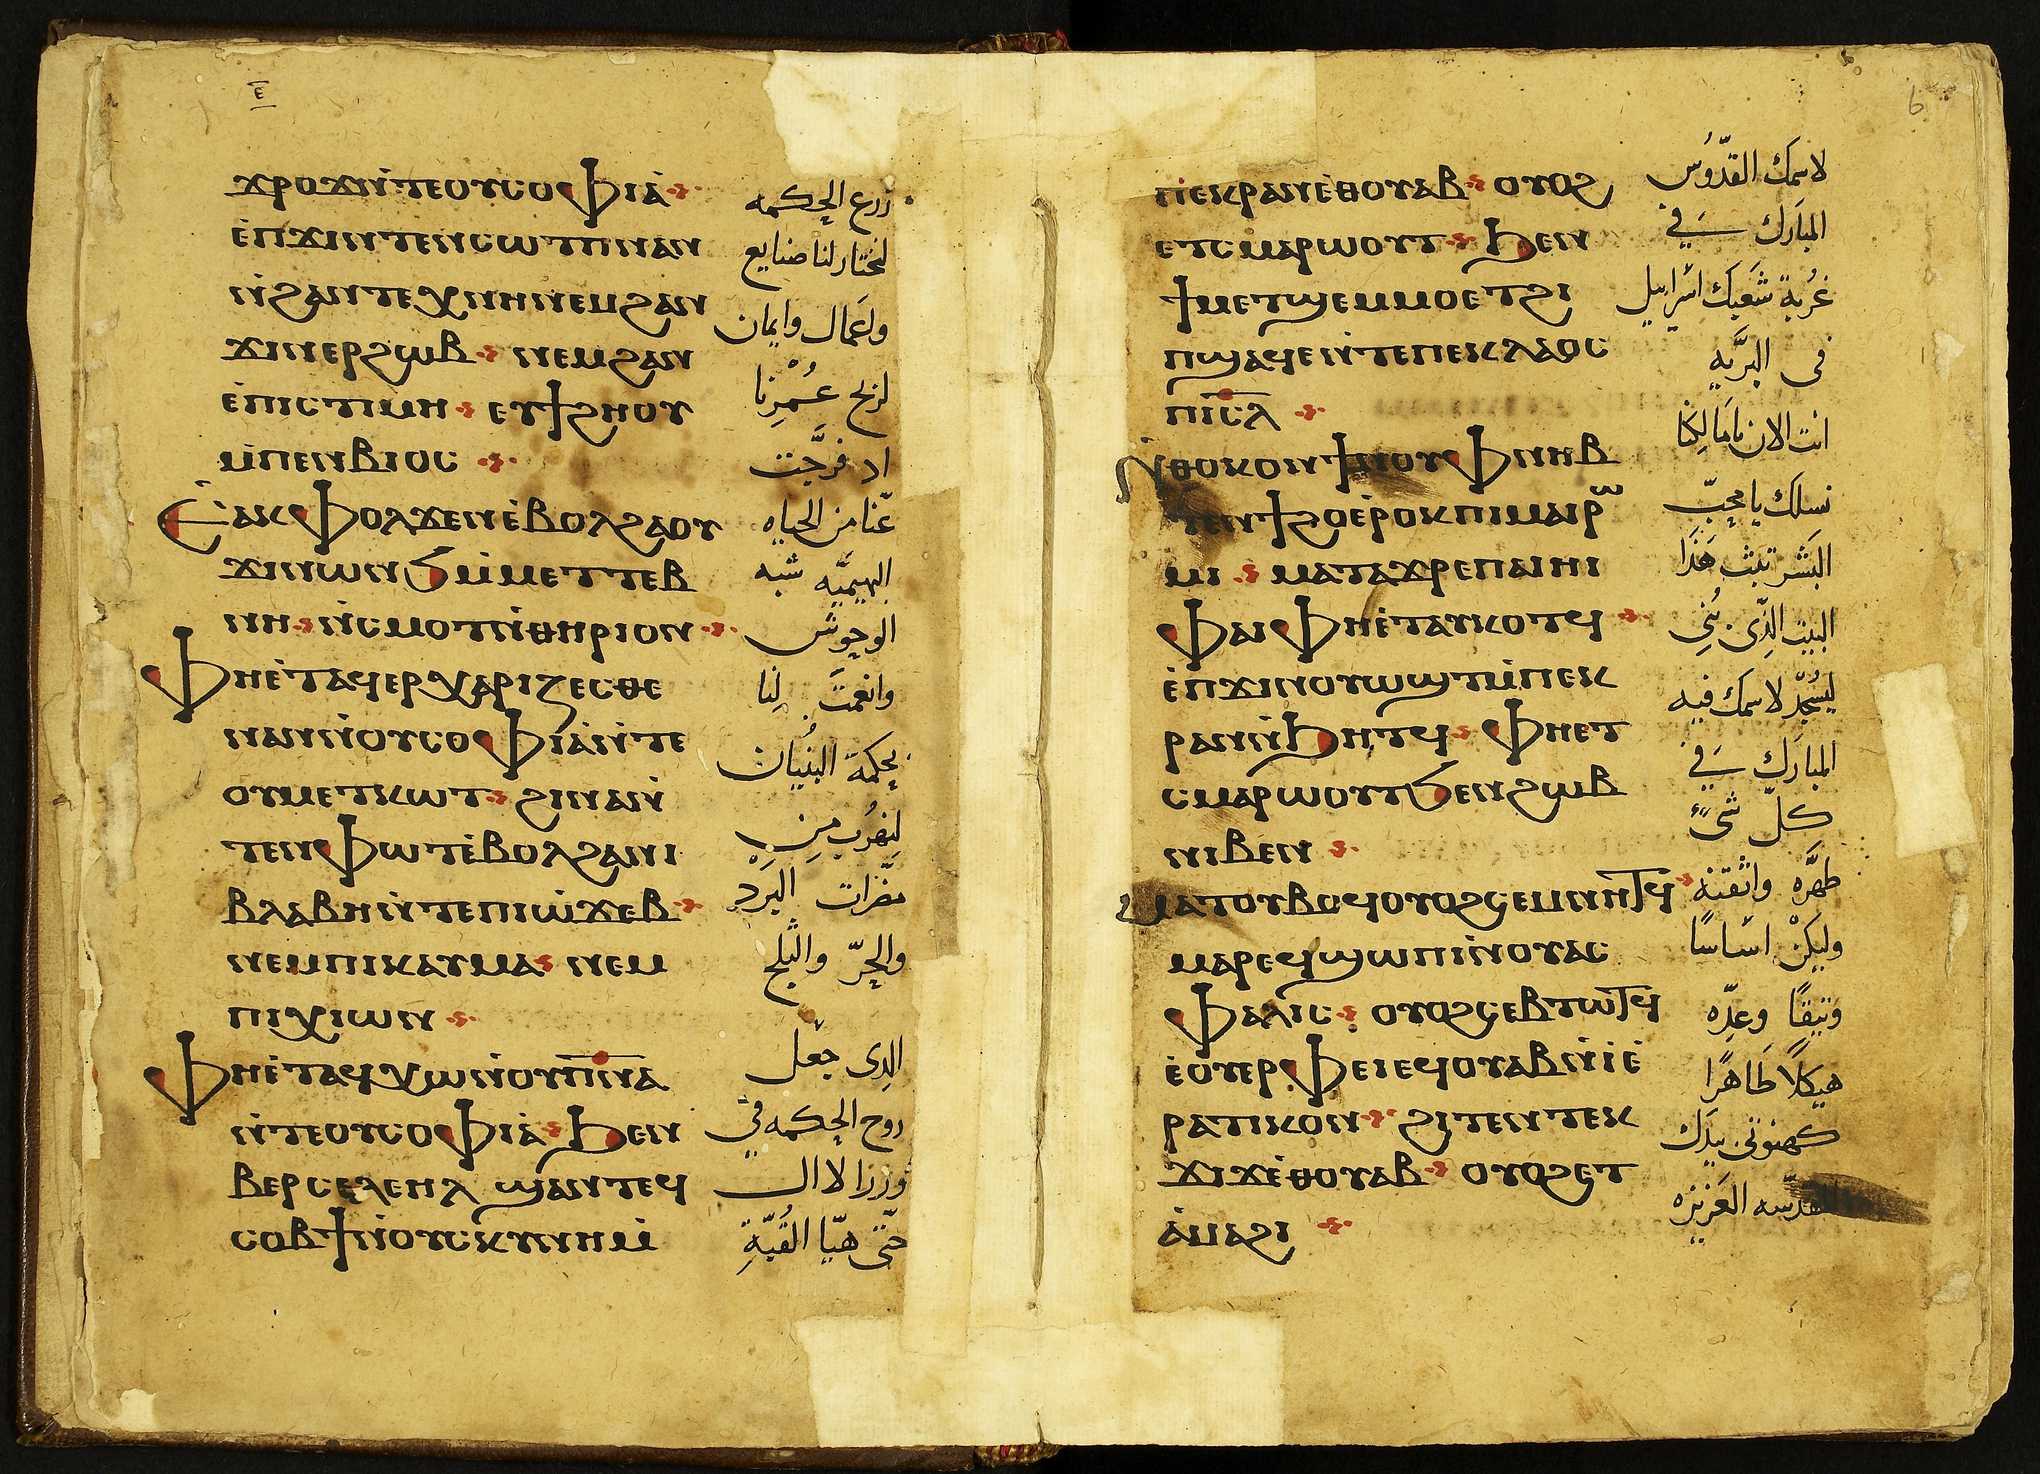 ⲉ̅
ϫⲣⲟϫ ⲛ̀ⲧⲉ ⲟⲩⲥⲟⲫⲓⲁ̀
ⲉ̀ⲡϫⲓⲛⲧⲉⲛⲥⲱⲧⲡ ⲛⲁⲛ
ⲛ̀ϩⲁⲛⲧⲉⲭⲛⲏ ⲛⲉⲙ ϩⲁⲛ
ϫⲓⲛⲉⲣϩⲱⲃ ⲛⲉⲙ ϩⲁⲛ
ⲉ̀ⲡⲓⲥⲧⲓⲙⲏ ⲉⲩϯϩⲏⲟⲩ
ⲙ̀ⲡⲉⲛⲃⲓⲟⲥ
ⲉ̀ⲁⲕⲫⲟⲗϫⲉⲛ ⲉ̀ⲃⲟⲗ ϩⲁ ⲟⲩ
ϫⲓⲛⲱⲛϧ ⲙ̀ⲙⲉⲧⲧⲉⲃ
ⲛⲏ ⲛ̀ⲥⲙⲟⲧ ⲛ̀ⲑⲏⲣⲓⲟⲛ
ⲫⲏⲉ̀ⲧⲁϥⲉⲣⲭⲁⲣⲓⲍⲉⲥⲑⲉ
ⲛⲁⲛ ⲛ̀ⲟⲩⲥⲟⲫⲓⲁ̀ ⲛ̀ⲧⲉ
ⲟⲩⲙⲉⲧⲕⲱⲧ ϩⲓⲛⲁ ⲛ̀
ⲧⲉⲛⲫⲱⲧ ⲉ̀ⲃⲟⲗ ϩⲁ ⲛⲓ
ⲃⲗⲁⲃⲏ ⲛ̀ⲧⲉ ⲡⲓⲱ̀ϫⲉⲃ
ⲛⲉⲙ ⲡⲓⲕⲁⲩⲙⲁ ⲛⲉⲙ
ⲡⲓⲭⲓⲱⲛ
ⲫⲏⲉ̀ⲧⲁϥⲭⲱ ⲛ̀ⲟⲩⲡ̅ⲛ̅ⲁ
ⲛ̀ⲧⲉ ⲟⲩⲥⲟⲫⲓⲁ̀ ϧⲉⲛ
ⲃⲉⲣⲥⲉⲗⲉⲏⲗ ϣⲁⲛⲧⲉϥ
ⲥⲟⲃϯ ⲛ̀ⲟⲩⲥⲕⲩⲛⲏ ⲙ̀
زرع الحكمه
لنختار لنا صنايع
ولعمال وايمان
لربح عُمْرِنا
اد فرَّجت
عنّا من الحياه
البهيميَّه شبه
الوحوش
وانعمتَ لنا
بحكمة البنُيان
لِنهرُب من
مضّرات البرَدِ
والحرّ والثلج
الدى جعل
روح الحكمه في
حتّى هيّا القُبّةِ
6
ⲡⲉⲕⲣⲁⲛ ⲉ̀ⲑⲟⲩⲁⲃ ⲟⲩⲟϩ
ⲉⲧⲥⲙⲁⲣⲱⲟⲩⲧ ϧⲉⲛ
ϯⲙⲉⲧϣⲉⲙⲙⲟ ⲉⲧϩⲓ
ⲡϣⲁϥⲉ ⲛ̀ⲧⲉ ⲡⲉⲕⲗⲁⲟⲥ
ⲡⲓ̅ⲥ̅ⲗ̅
ⲛ̀ⲑⲟⲕ ⲟⲛ ϯⲛⲟⲩ ⲫⲛⲏⲃ
ⲧⲉⲛϯϩⲟ ⲉ̀ⲣⲟⲕ ⲡⲓⲙⲁⲓⲣⲱ
ⲙⲓ ⲙⲁⲧⲁϫⲣⲉ ⲡⲁⲓⲏⲓ
ⲫⲁⲓ ⲫⲏⲉ̀ⲧⲁⲩⲕⲟⲧϥ
ⲉ̀ⲡϫⲓⲛⲟⲩⲱϣⲧ ⲙ̀ⲡⲉⲕ
ⲣⲁⲛ ⲛ̀ϧⲏⲧϥ ⲫⲏⲉⲧ
ⲥⲙⲁⲣⲱⲟⲩⲧ ϧⲉⲛ ϩⲱⲃ
ⲛⲓⲃⲉⲛ
ⲙⲁⲧⲟⲩⲃⲟϥ ⲟⲩⲟϩ ⲥⲉⲙⲛⲏⲧϥ
ⲙⲁⲣⲉϥϣⲱⲡⲓ ⲛ̀ⲟⲩⲁⲥ
ⲫⲁⲗⲓⲥ ⲟⲩⲟϩ ⲥⲉⲃⲧⲱⲧϥ
ⲉ̀ⲟⲩⲉⲣⲫⲉⲓ ⲉϥⲟⲩⲁⲃ ⲛ̀ⲓⲉ̀
ⲣⲁⲧⲓⲕⲟⲛ ϩⲓⲧⲉⲛ ⲧⲉⲕ
ϫⲓϫ ⲉ̀ⲑⲟⲩⲁⲃ ⲟⲩⲟϩ ⲉⲧ
ⲁ̀ⲙⲁϩⲓ
لاسمك القدّوُس
المبَارك في
غرُبة شَعبَك اسْراييل
فى البرَّيه
انت الان يامَالِكنا
نسلك يا محبّ
البَشر تبث هَذَا
البيت الذِّى بُنِي
ليسُجّد لاسمك فيه
المبَارك في
كلّ شىء
طهّره واثقته
وليكنْ اسَاسًا
وتيقًا وعدّه
هيكلاً طَاهرًا
كهنوتى بيدَك
المقدسّه العَزيزه